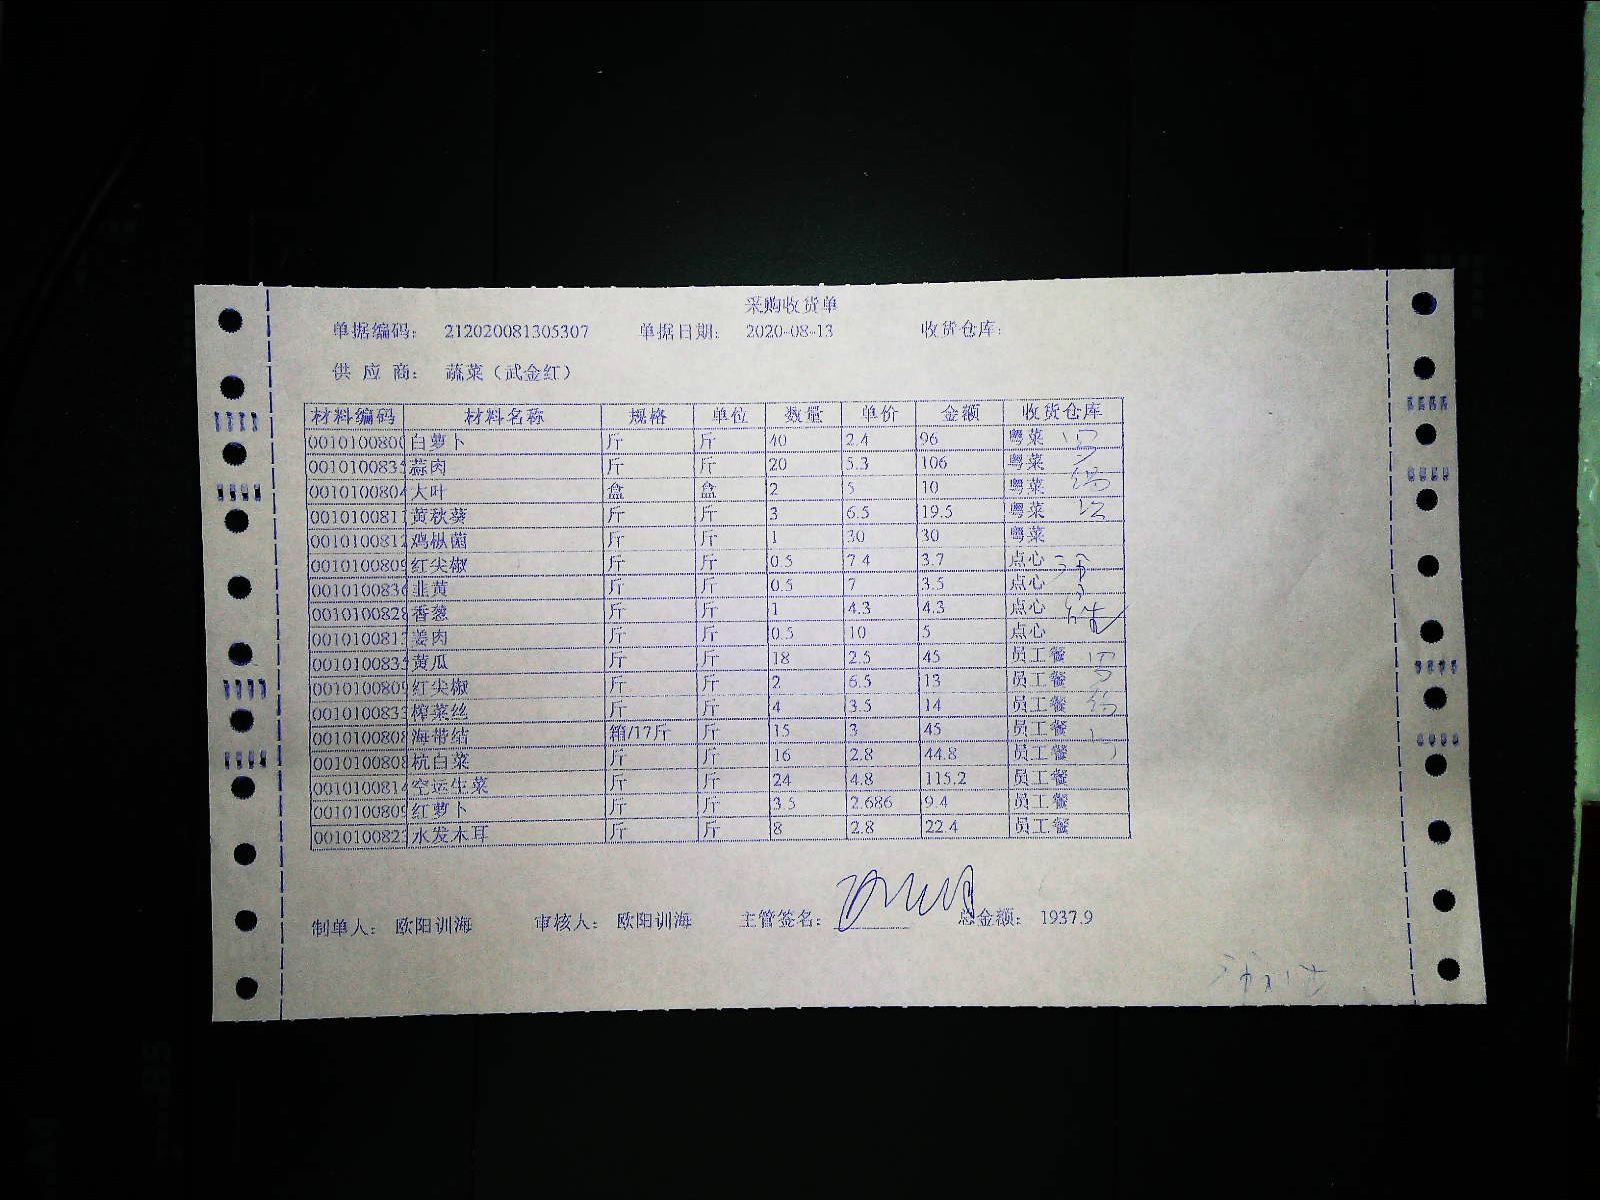 采购收货单
单据编码： 212020081305307 单据日期： 2020-08-13 收货仓库：
供 应 商： 蔬菜（武金红）
材料编码 材料名称 规格 单位 数量 单价 金额 收货仓库
0010100800 白萝卜 斤 斤 40 2.4 96 粤菜
001010083 蒜肉 斤 斤 20 5.3 106 粤菜
001010080 大叶 盒 盒 2 5 10 粤菜
001010081 黄秋葵 斤 斤 3 6.5 19.5 粤菜
001010081 鸡枞菌 斤 斤 1 30 30 粤菜
001010080 红尖椒 斤 斤 0.5 7.4 3.7 点心
001010083 韭黄 斤 斤 0.5 7 3.5 点心
001010082 香葱 斤 斤 1 4.3 4.3 点心
001010081 姜肉 斤 斤 0.5 10 5 点心
001010083 黄瓜 斤 斤 18 2.5 45 员工餐
001010080 红尖椒 斤 斤 2 6.5 13 员工餐
001010083 榨菜丝 斤 斤 4 3.5 14 员工餐
001010080 海带结 箱/17斤 斤 15 3 45 员工餐
001010080 杭白菜 斤 斤 16 2.8 44.8 员工餐
001010081 空运生菜 斤 斤 24 4.8 115.2 员工餐
001010080 红萝卜 斤 斤 3.5 2.686 9.4 员工餐
001010082 水发木耳 斤 斤 8 2.8 22.4 员工餐
制单人： 欧阳训海 审核人： 欧阳训海 主管签名： 总金额： 1937.9